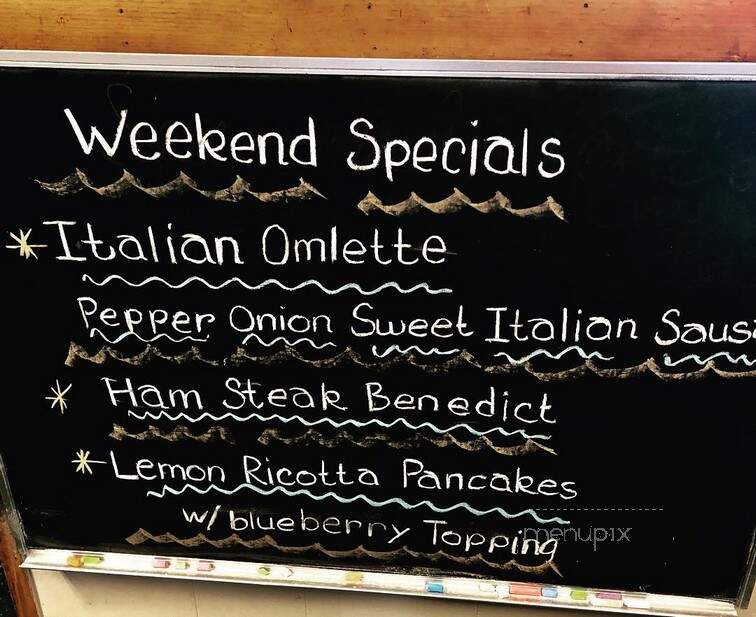 Weekend Specials
* Italian Omlette
Pepper Onion Sweet Italian Saus
* Ham Steak Benedict
* Lemon Ricotta Pancakes
w/ blueberry Topping
menupix